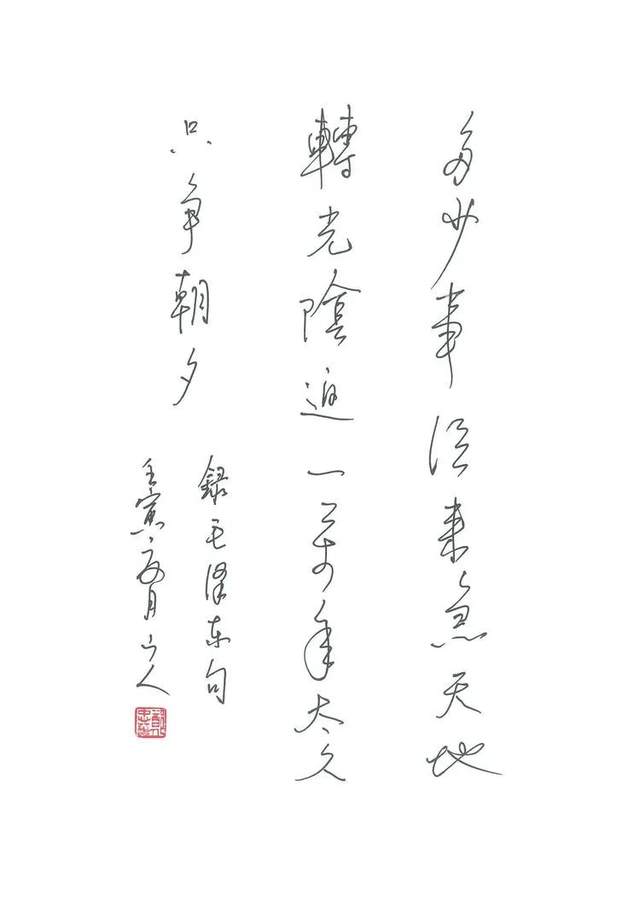 多少事從來急天地
轉光陰迫一萬年太久
只争朝夕
錄毛澤東句
壬寅夏月山人